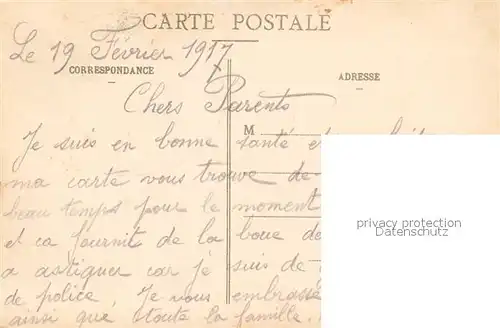 CARTE POSTALE
Le 19 Février 1917
CORRESPONDANCE
ADRESSE
Chers Parents
M
Je suis en bonne santé et
ma carte vous trouve de
beau temps pour le moment
et ca fournit de la boue
a astiquer car je suis de
de police. Je vous embrasse
ainsi que toute la famille.
privacy protection
Datenschutz